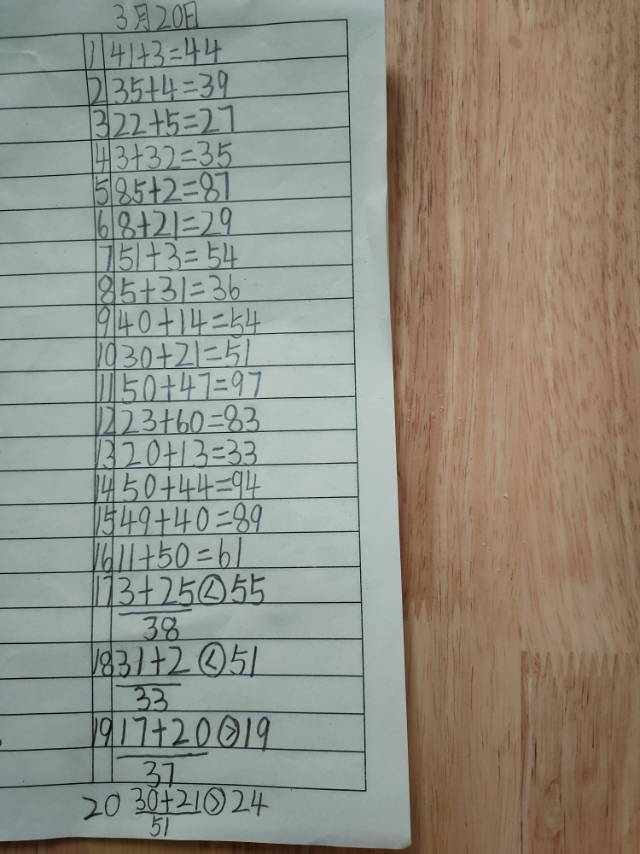 3月20日
1 41+3=44
2 35+4=39
3 22+5=27
4 3+32=35
5 85+2=87
6 8+21=29
7 51+3=54
8 5+31=36
9 40+14=54
10 30+21=51
11 50+47=97
12 23+60=83
13 20+13=33
14 50+44=94
15 49+40=89
16 11+50=61
17 3+25<55
38
18 31+2<51
33
19 17+20>19
37
20 30+21>24
51